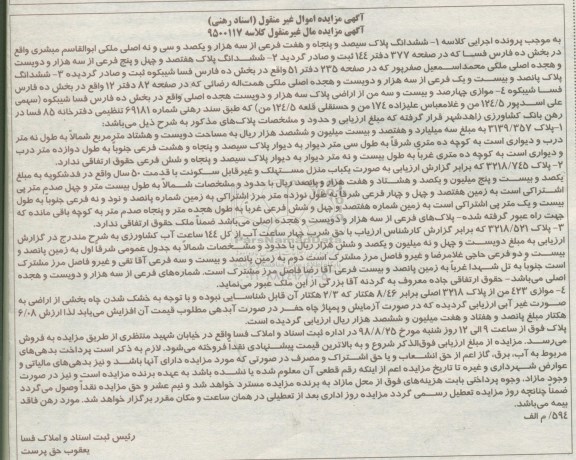 آگهی مزایده اموال غیر منقول (اسناد رهنی)
آگهی مزایده مال غیرمنقول کلاسه ۹۵۰۰۱۱۷
به موجب پرونده اجرایی کلاسه ۱- ششدانگ پلاک سیصد و پنجاه و هفت فرعی از سه هزار و یکصد و سی و نه اصلی ملکی ابوالقاسم مبشری واقع
در بخش ده فارس فسا که در صفحه ۳۷۷ دفتر ۱۴۴ ثبت و صادر گردید ۲- ششدانگ پلاک هفتصد و چهل و پنج فرعی از سه هزار و دویست
و هجده اصلی ملکی محمداسمعیل صفرپور که در صفحه ۲۳۵ دفتر ۵۱ واقع در بخش ده فارس فسا شیبکوه ثبت و صادر گردیده ۳- ششدانگ
پلاک پانصد و بیست و یک فرعی از سه هزار و دویست و هجده اصلی ملکی همت‌اله رضائی که در صفحه ۸۲ دفتر ۱۲ واقع در بخش ده فارس
فسا شیبکوه ۴- موازی چهارصد و بیست و سه من از اراضی پلاک سه هزار و دویست هجده اصلی واقع در بخش ده فارس فسا شیبکوه (سهمی
علی اسدپور ۱۲۴/۵ من و غلامعباس علیزاده ۱۷۴ من و دستقلی قلعه ۱۲۴/۵ من) که طبق سند رهنی شماره ۶۹۱۸۱ تنظیمی دفترخانه ۸۵ فسا در
رهن بانک کشاورزی زاهدشهر قرار گرفته که مبلغ ارزیابی و حدود و مشخصات پلاک‌های مذکور به شرح ذیل می‌باشد:
۱-پلاک ۳۱۳۹/۳۵۷ به مبلغ سه میلیارد و هفتصد و بیست میلیون و ششصد هزار ریال به مساحت دویست و هشتاد مترمربع شمالاً به طول نه متر
درب و دیواری است به کوچه ده متری شرقاً به طول سی متر دیوار به دیوار پلاک سیصد و پنجاه و هشت فرعی جنوباً به طول دوازده متر درب
و دیواری است به کوچه ده متری غرباً به طول بیست و نه متر دیوار به دیوار پلاک سیصد و پنجاه و شش فرعی حقوق ارتفاقی ندارد.
۲- پلاک ۳۲۱۸/۷۴۵ که برابر گزارش ارزیابی به صورت یکباب منزل مستهلک و غیرقابل سکونت با قدمت ۵۰ سال واقع در فدشکویه به مبلغ
یکصد و بیست و پنج میلیون و یکصد و هشتاد و هفت هزار و پانصد ریال با حدود و مشخصات شمالاً به طول بیست متر و چهل صدم متر پی
اشتراکی است به زمین هفتصد و چهل و چهار فرعی شرقاً به طول نوزده متر مرز اشتراکی به زمین شماره پانصد و نود و نه فرعی جنوباً به طول
بیست و یک متر پی اشتراکی است به زمین شماره هفتصد و چهل و شش فرعی غرباً به طول هجده متر و پنجاه صدم متر به کوچه باقی مانده که
جهت راه عبور گرفته شده- پلاک‌های فرعی از سه هزار و دویست و هجده اصلی می‌باشد ضمناً ملک حقوق ارتفاقی ندارد.
۳- پلاک ۳۲۱۸/۵۲۱ که برابر گزارش کارشناس ارزیاب با حق شرب چهار ساعت آب از کل ۱۴۴ ساعت آب کشاورزی به شرح مندرج در گزارش
ارزیابی به مبلغ دویست و چهل و نه میلیون و یکصد و شش هزار ریال با حدود و مشخصات شمالاً به جدول عمومی شرقاً اول به زمین پانصد و
بیست و دو فرعی حاجی غلامرضا و غیرو فاصل مرز مشترک است دوم به زمین پانصد و بیست و سه فرعی آقا تقی و غیرو فاصل مرز مشترک
است جنوباً به تل شهدا غرباً به زمین پانصد و بیست فرعی آقا رضا فاصل مرز مشترک است. شماره‌های فرعی از سه هزار و دویست و هجده
اصلی می‌باشد- حقوق ارتفاقی جاده معروف به گردنه آقا بزرگی از این ملک عبور می‌نماید.
۴- موازی ۴۲۳ من از پلاک ۳۲۱۸ اصلی برابر ۸/۴۶ هکتار که ۲/۳ هکتار آن قابل شناسایی نبوده و با توجه به خشک شدن چاه بخشی از اراضی به
صورت غیر آبی ارزیابی گردیده که در صورت آزمایش و پمپاژ چاه حفر در صورت آبدهی مطلوب قیمت آن افزایش می‌یابد لذا ارزش ۶/۰۸
هکتار مبلغ پانصد و هفتاد و هفت میلیون و ششصد هزار ریال ارزیابی گردیده است.
پلاک فوق از ساعت ۹ الی ۱۲ روز شنبه مورخ ۹۸/۸/۲۵ در اداره ثبت اسناد و املاک فسا واقع در خیابان شهید منتظری از طریق مزایده به فروش
می‌رسد. مزایده از مبلغ ارزیابی فوق‌الذکر شروع و به بالاترین قیمت پیشنهادی نقداً فروخته می‌شود. لازم به ذکر است پرداخت بدهی‌های
مربوط به آب، برق، گاز اعم از حق انشعاب و یا حق اشتراک و مصرف در صورتی که مورد مزایده دارای آنها باشد و نیز بدهی‌های مالیاتی و
عوارض شهرداری و غیره تا تاریخ مزایده اعم از اینکه رقم قطعی آن معلوم شده یا نشده باشد به عهده برنده مزایده است و نیز در صورت
وجود مازاد، وجوه پرداختی بابت هزینه‌های فوق از محل مازاد به برنده مزایده مسترد خواهد شد و نیم عشر و حق مزایده نقداً وصول می‌گردد
ضمناً چنانچه روز مزایده تعطیل رسمی گردد مزایده روز اداری بعد از تعطیلی در همان ساعت و مکان مقرر برگزار خواهد شد. مورد رهن فاقد
بیمه می‌باشد.
۵۹۴/ م الف
رئیس ثبت اسناد و املاک فسا
یعقوب حق پرست